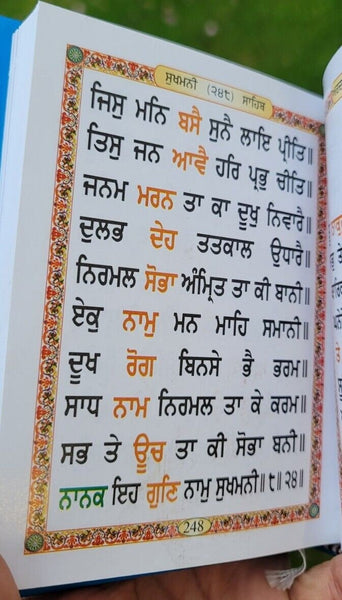 ਸੁਖਮਨੀ (੨੪੮) ਸਾਹਿਬ
ਜਿਸੁ ਮਨਿ ਬਸੈ ਸੁਨੈ ਲਾਇ ਪ੍ਰੀਤਿ॥
ਤਿਸੁ ਜਨ ਆਵੈ ਹਰਿ ਪ੍ਰਭੁ ਚੀਤਿ॥
ਜਨਮ ਮਰਨ ਤਾ ਕਾ ਦੂਖੁ ਨਿਵਾਰੈ॥
ਦੁਲਭ ਦੇਹ ਤਤਕਾਲ ਉਧਾਰੈ॥
ਨਿਰਮਲ ਸੋਭਾ ਅੰਮ੍ਰਿਤ ਤਾ ਕੀ ਬਾਨੀ॥
ਏਕੁ ਨਾਮੁ ਮਨ ਮਾਹਿ ਸਮਾਨੀ॥
ਦੂਖ ਰੋਗ ਬਿਨਸੇ ਭੈ ਭਰਮ॥
ਸਾਧ ਨਾਮ ਨਿਰਮਲ ਤਾ ਕੇ ਕਰਮ॥
ਸਭ ਤੇ ਊਚ ਤਾ ਕੀ ਸੋਭਾ ਬਨੀ॥
ਨਾਨਕ ਇਹ ਗੁਣਿ ਨਾਮੁ ਸੁਖਮਨੀ॥੮॥੨੪॥
248